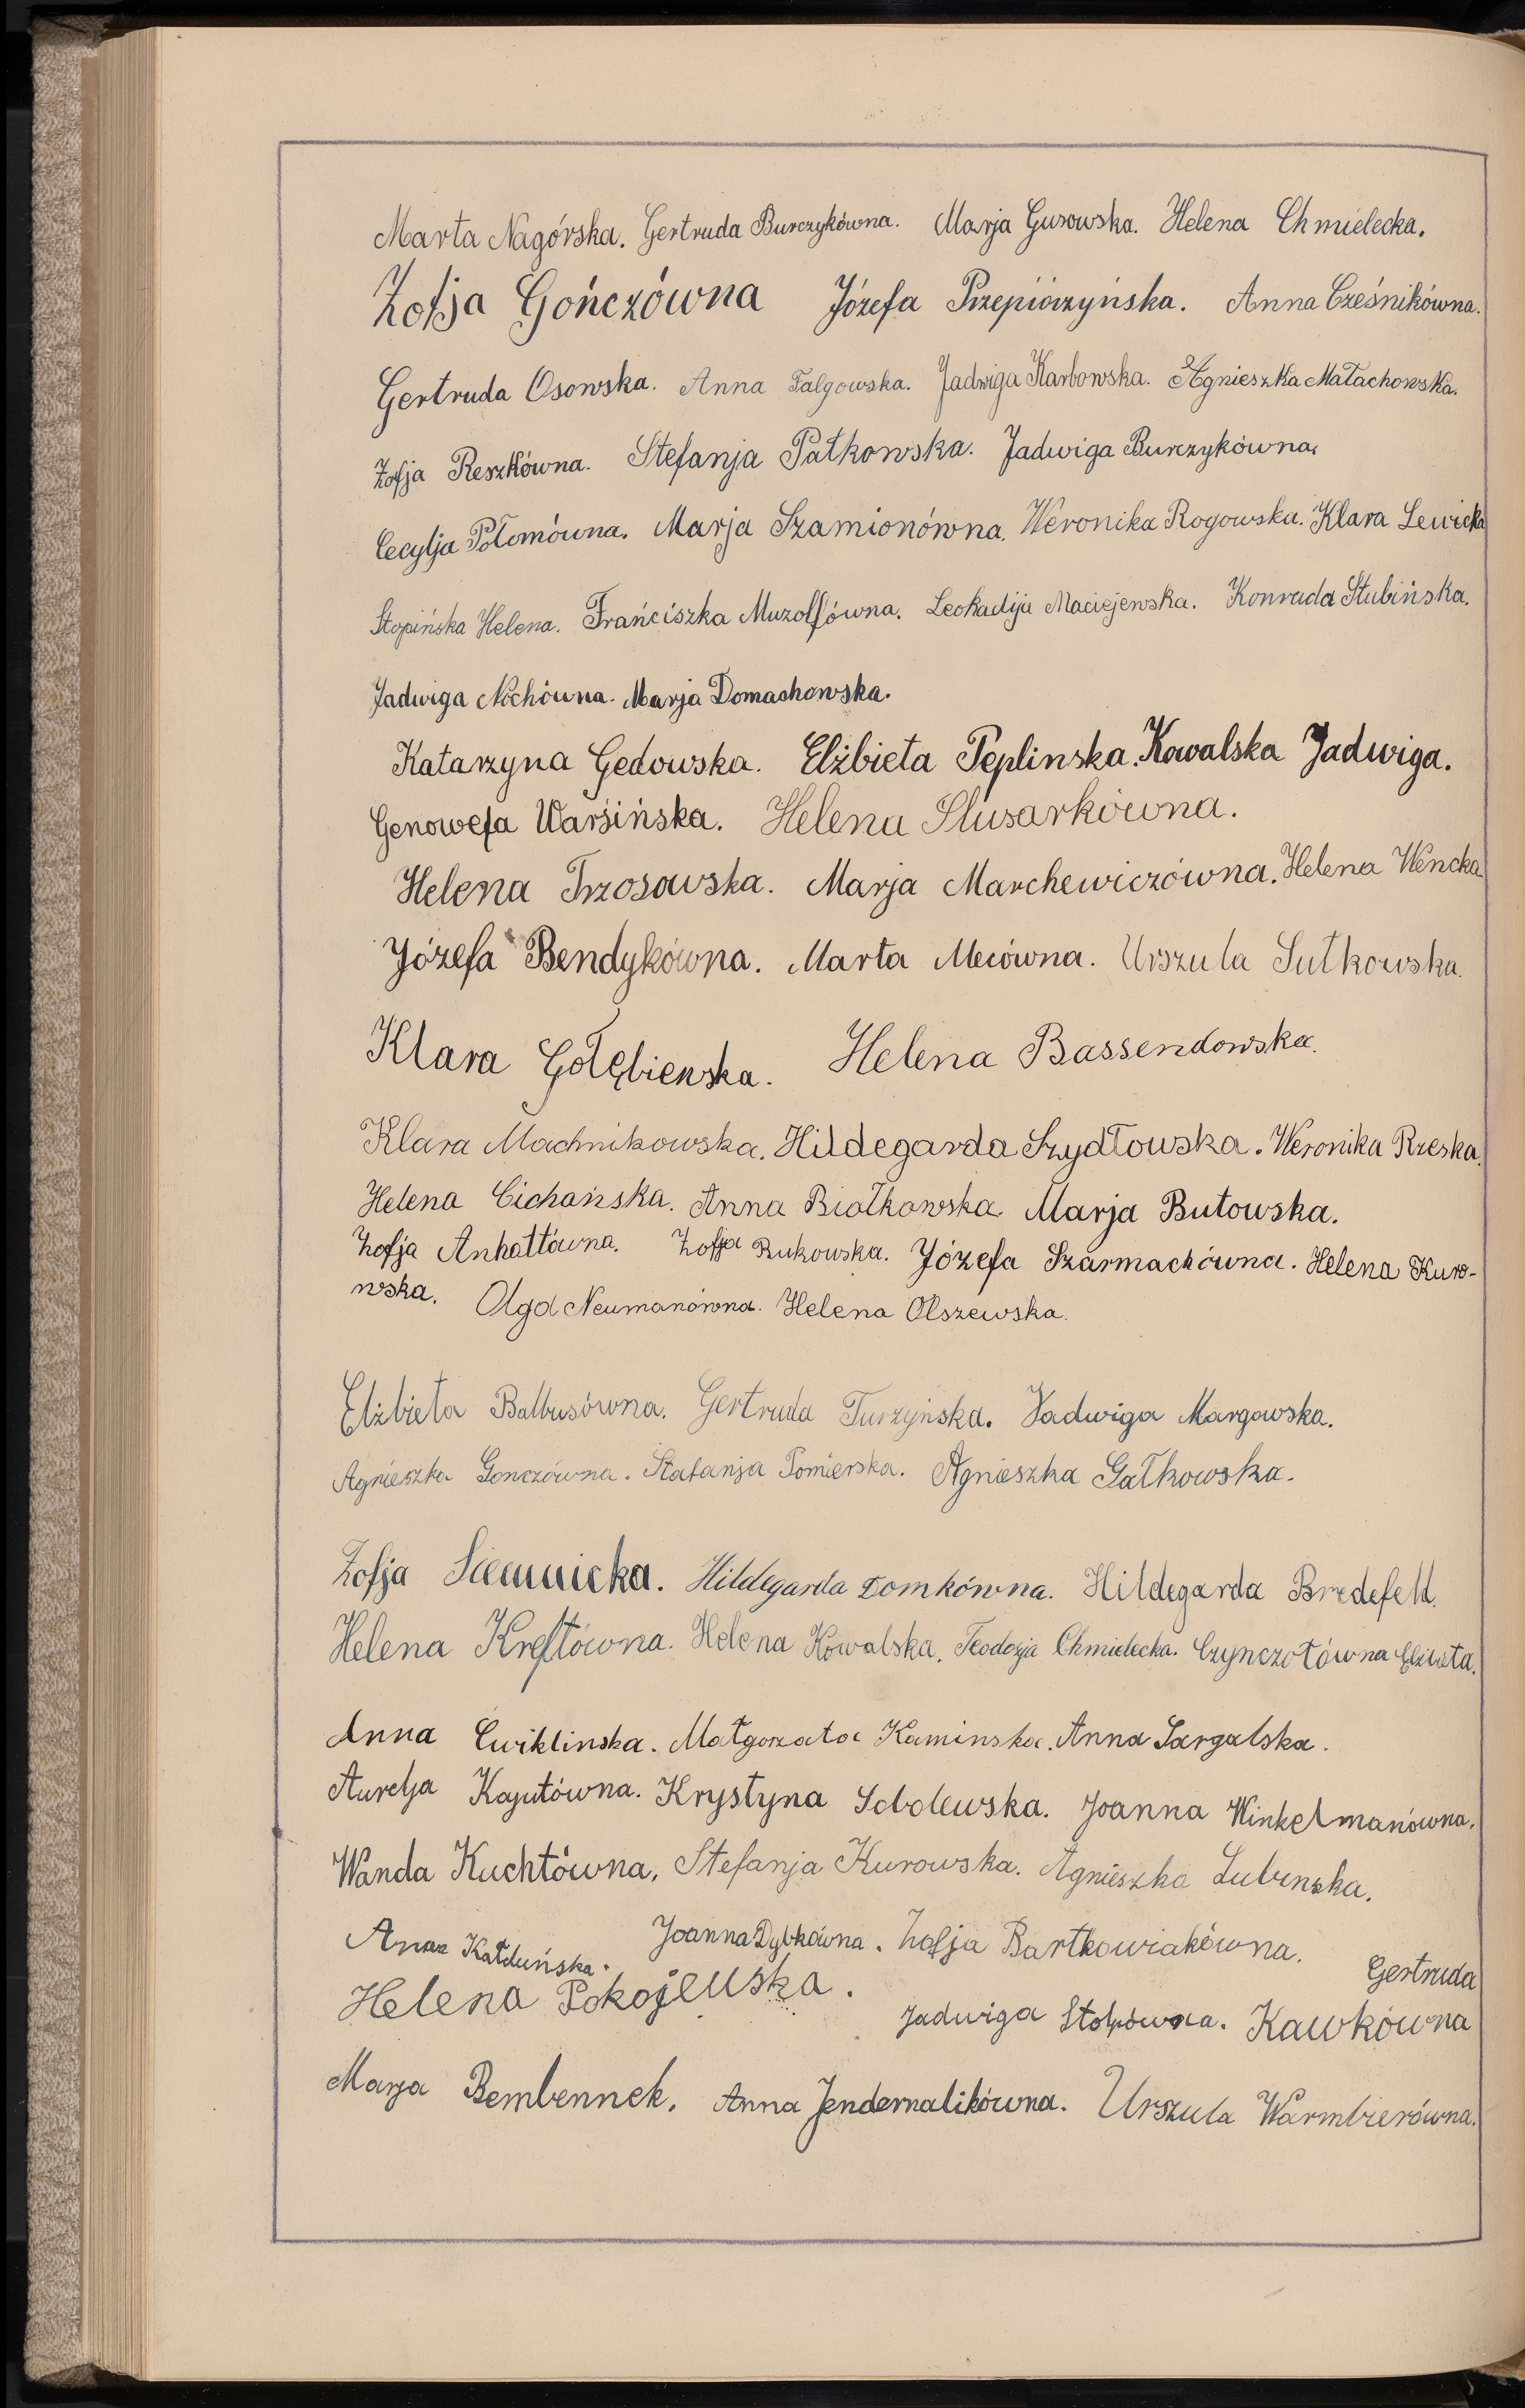 Marta Nagórska. Gertruda Burczykówna. Marja Gusowska. Helena Chmielecka.
Zofja Gończówna Józefa Przepiórzyńska. Anna Cześnikówna.
Gertruda Osowska. Anna Falgowska. Jadwiga Karbowska. Agnieszka Małachowska.
Zofja Reszkówna. Stefanja Patkowska. Jadwiga Burczykówna.
Cecylja Połomówna. Marja Szamionówna. Weronika Rogowska. Klara Lewicka
Stopińska Helena. Frańciszka Muzolfówna. Leokadija Maciejewska. Konrada Stubińska.
Jadwiga Nochówna. Marja Domachowska.
Katarzyna Gedowska. Elżbieta Peplinska. Kowalska Jadwiga.
Genowefa Warsińska. Helena Slusarkówna.
Helena Trzosowska. Marja Marchewiczówna. Helena Wencka.
Józefa Bendykówna. Marta Mecówna. Urszula Sutkowska.
Klara Gołębiewska. Helena Bassendowska.
Klara Machnikowska. Hildegarda Szydłowska. Weronika Rzeska.
Helena Cichańska. Anna Białkowska. Marja Butowska.
Zofja Anhaltówna. Zofja Bukowska. Józefa Szarmachówna. Helena Kuro-
wska. Olga Neumanówna. Helena Olszewska.
Elżbieta Balbusówna. Gertruda Turzyńska. Jadwiga Margowska.
Agnieszka Gonczówna. Stefanja Pomierska. Agnieszka Gałkowska.
Zofja Siemnicka. Hildegarda Domkówna. Hildegarda Bredefeld.
Helena Kreftówna. Helena Kowalska. Teodozja Chmielecka. Czynczołówna Elżbieta.
Anna Cwiklinska. Małgorzata Kaminska. Anna Sargalska.
Aurelja Kajutówna. Krystyna Sobolewska. Joanna Winkelmanówna.
Wanda Kuchtówna. Stefanja Kurowska. Agnieszka Lubinska.
Anna Kałduńska. Joanna Dybkówna. Zofja Bartkowiakówna. Gertruda
Helena Pokojewska. Jadwiga Stolpówna. Kawkówna
Marja Bembennek. Anna Jendernalikówna. Urszula Warmbierówna.